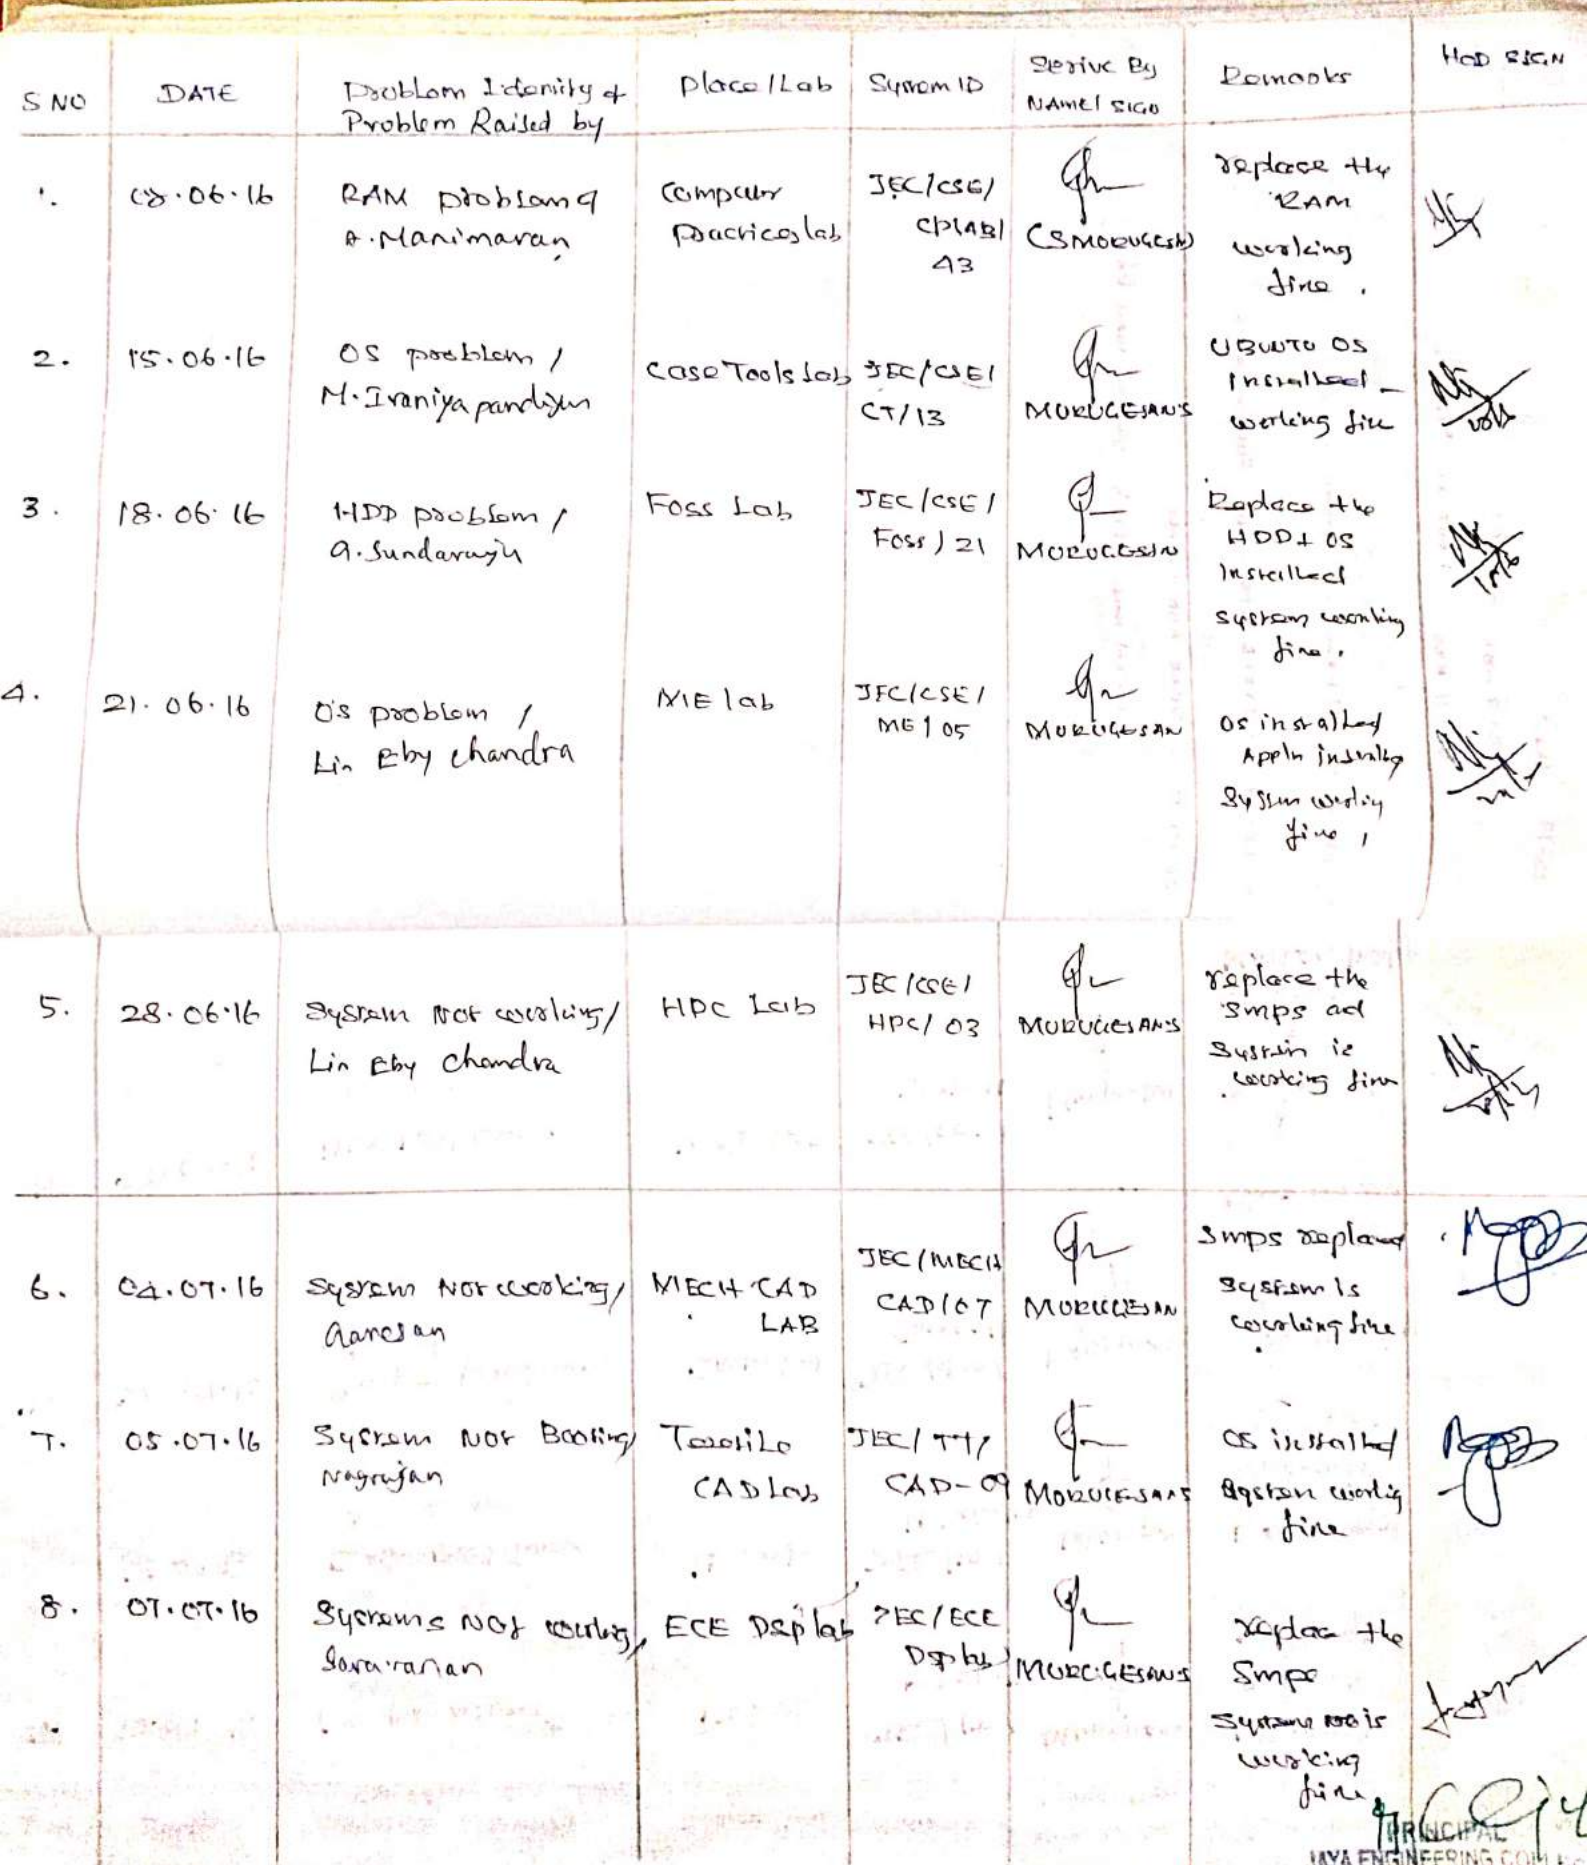 S NO DATE Problem Idenity & Problem Raised by Place/Lab System ID Serive By NAME/SIGN Remarks HOD SIGN
1. 08.06.16 RAM problem & A.Manimaran Computer Practices lab JEC/CSE/ CPLAB/ 43 (S MURUGESAN) replace the RAM working fine.
2. 15.06.16 OS problem / M.Iraniyapandiyan Case Tools Lab JEC/CSE/ CT/13 MURUGESAN S UBUNTU OS Installed - working fine
3. 18.06.16 HDD problem / G.Sundararaju Foss Lab JEC/CSE/ Foss/21 MURUGESAN Replace the HDD & OS Installed system working fine.
4. 21.06.16 OS problem / Lin Eby Chandra ME lab JEC/CSE/ ME/05 MURUGESAN OS installed Appln installing System working fine,
5. 28.06.16 System Not working/ Lin Eby Chandra HPC Lab JEC/CSE/ HPC/03 MURUGESAN S replace the Smps ad System is working fine
6. 04.07.16 System Not working/ Ganesan MECH CAD LAB JEC/MECH CAD/07 MURUGESAN Smps replaced System is working fine
7. 05.07.16 System Not Booting/ Nagrajan Textile CAD Lab JEC/TT/ CAD-09 MURUGESAN S OS installed System working fine
8. 07.07.16 Systems Not working, Saravanan ECE Dsp lab JEC/ECE Dsp MURUGESAN S replace the Smps System is working fine
PRINCIPAL
JAYA ENGINEERING